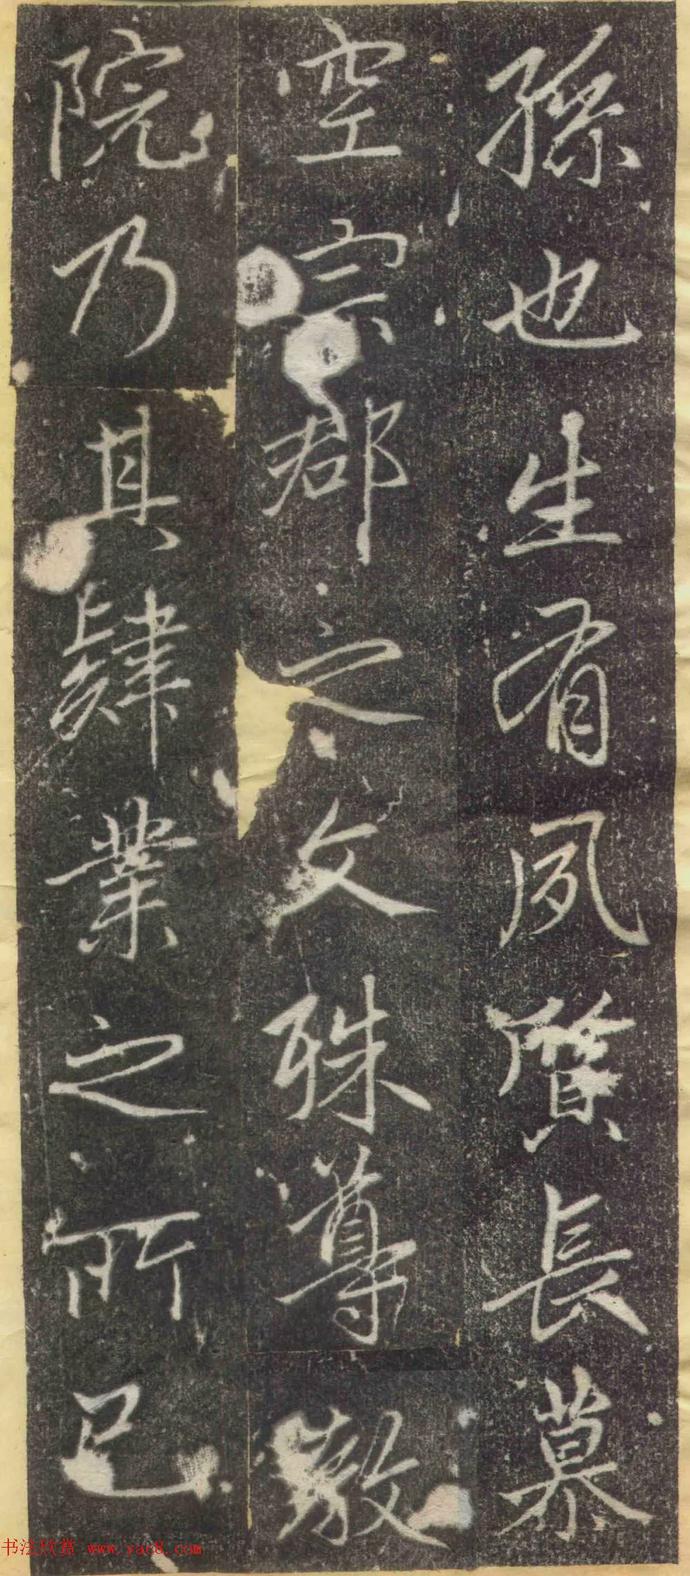 孫也生有夙質長慕
空宗郡之文殊尊教
院乃其肄業之所已
书法欣赏 www.yac8.com